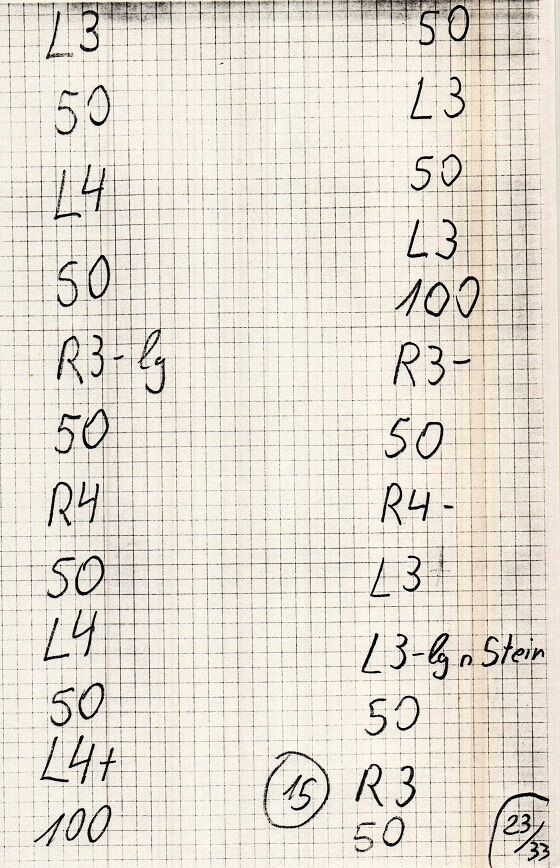 L3
50
L4
50
R3- lg
50
R4
50
L4
50
L4+
100
50
L3
50
L3
100
R3-
50
R4-
L3
L3-lg n Stein
50
R3
50
15
23/33